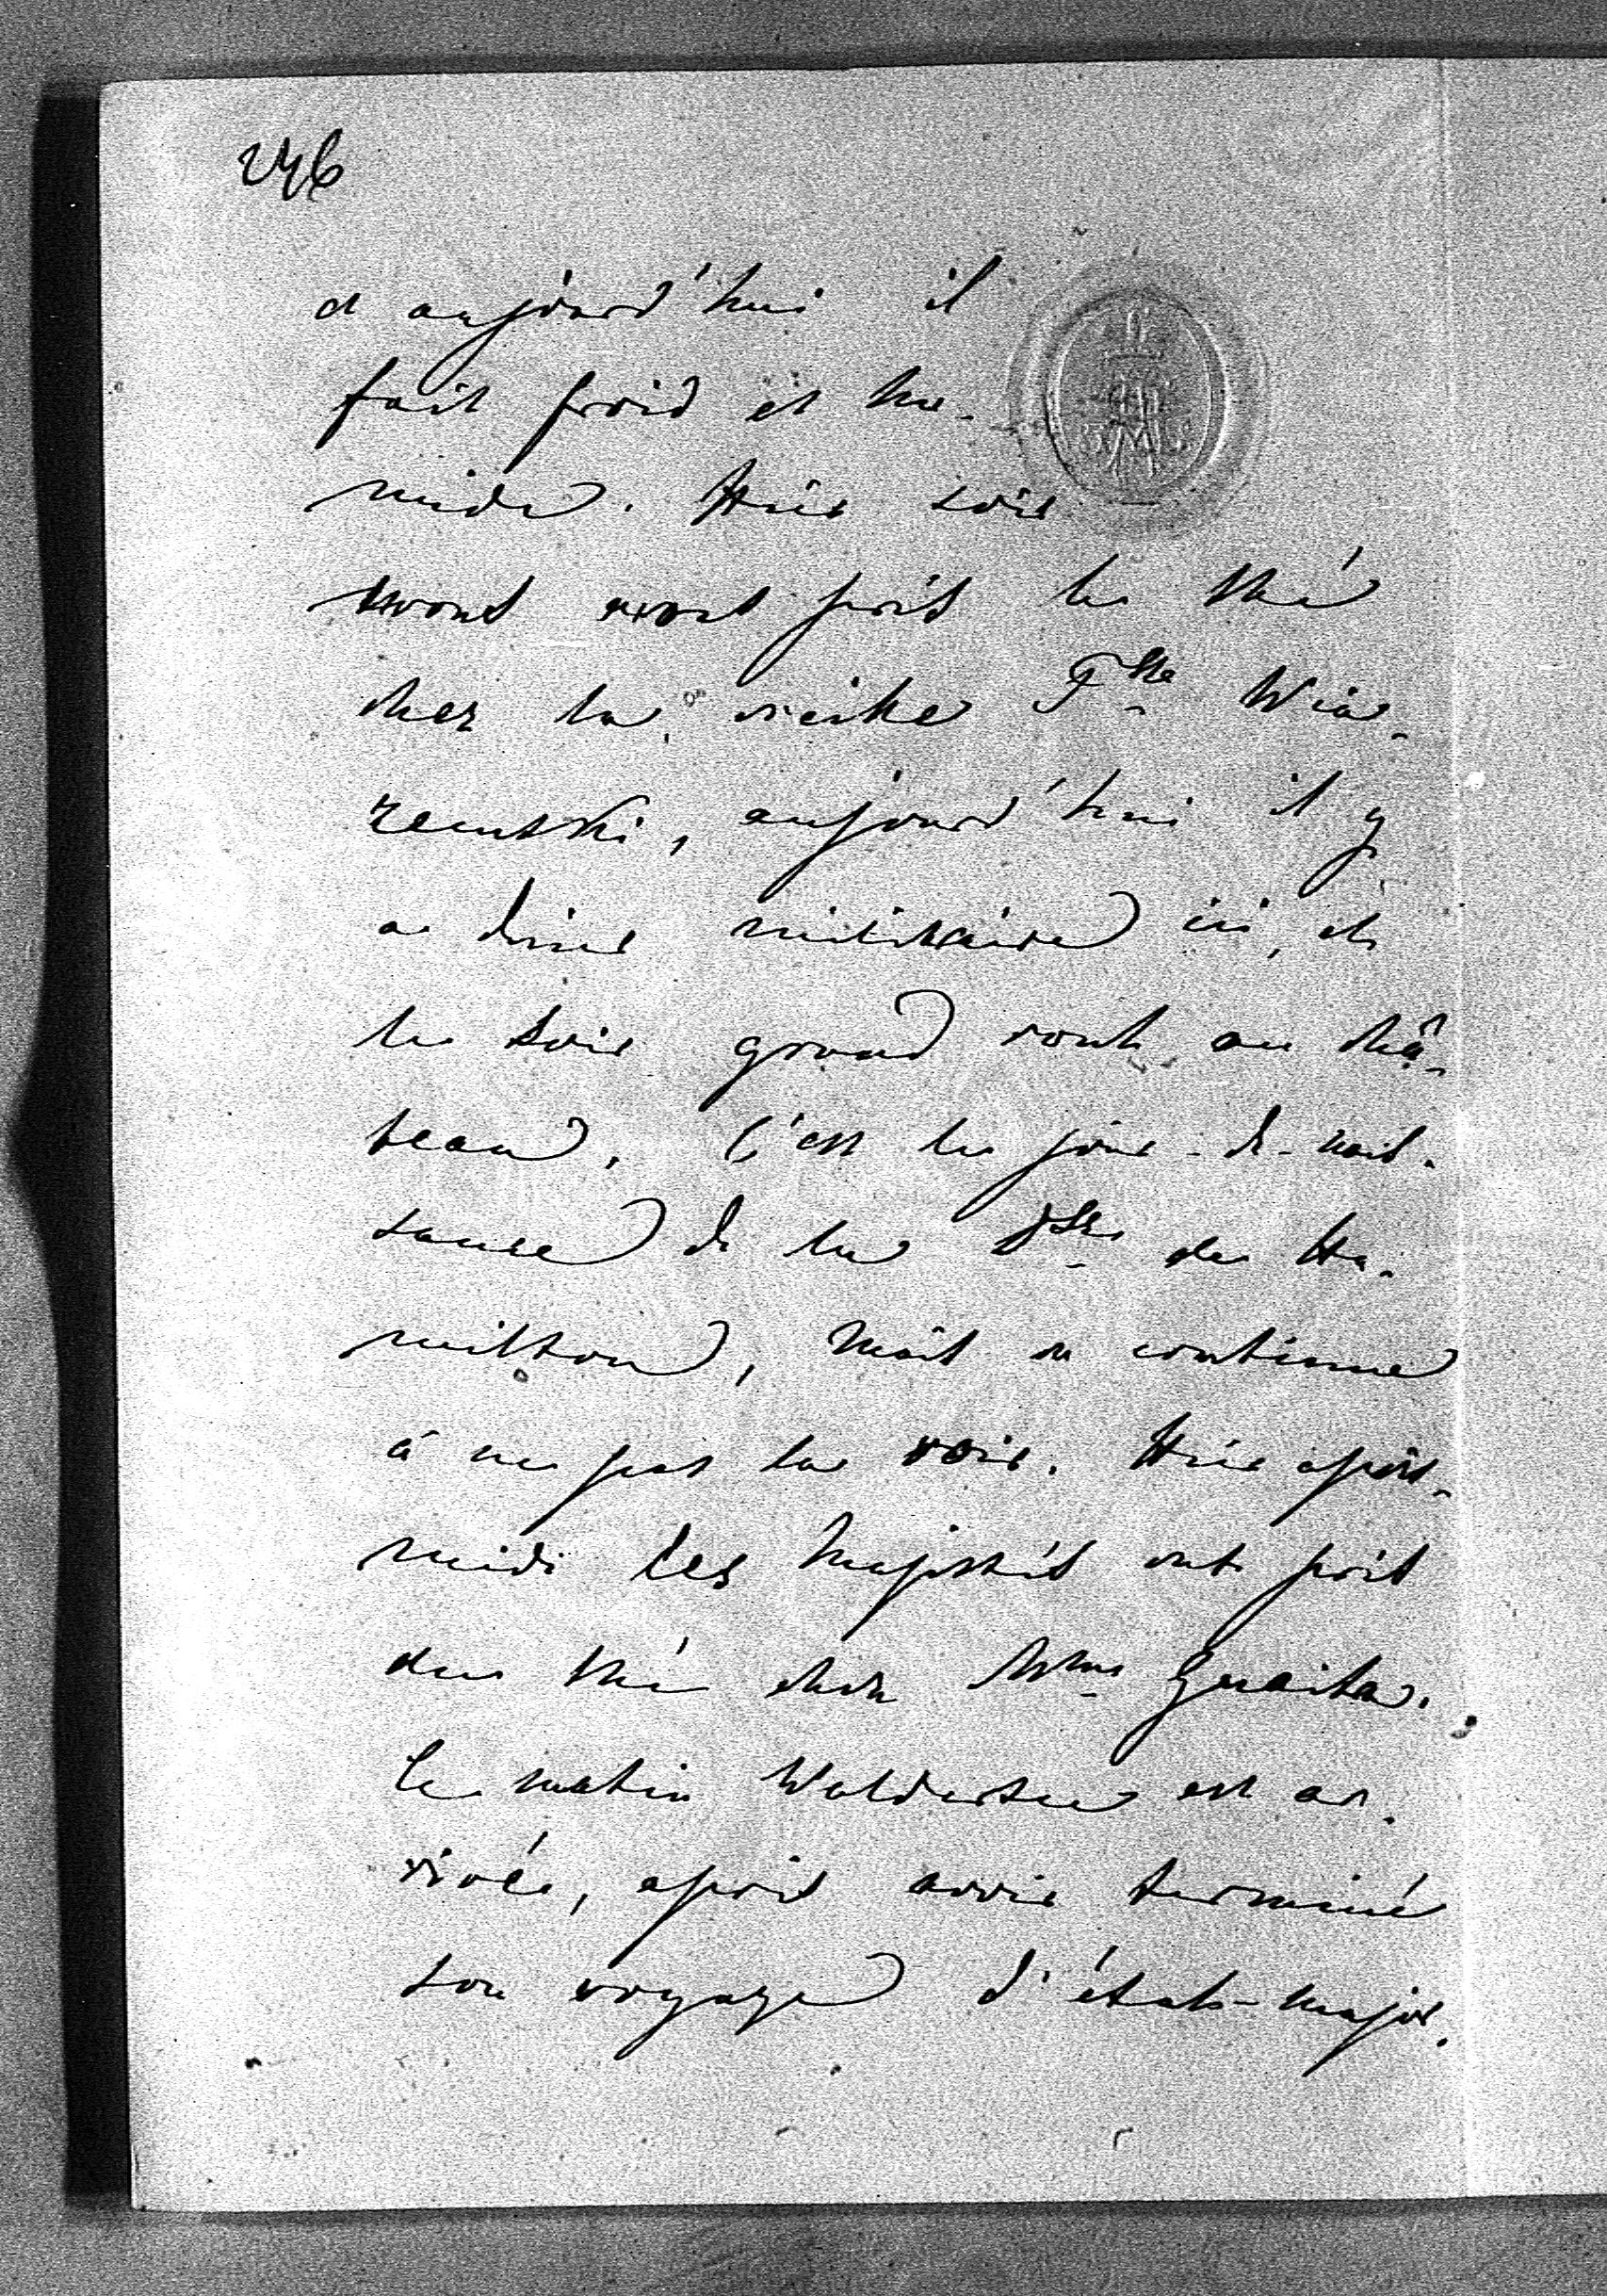 246
et aujourd'hui il
fait froid et hu-
mide. Hier soir
nous avons pris le thé
chez la vieille Psse Wia-
zemski, aujourd'hui il y
a diner militaire ici, et
le soir grand rout au châ-
teau. C'est le jour-de-nais-
sance de la Dsse de Ha-
milton, mais on continue
à ne pas la voir. Hier après-
midi les Majestés ont pris
du thé chez Mme Guaita.
Le matin Waldersee est ar-
rivé, après avoir terminé
son voyage d'état-major.